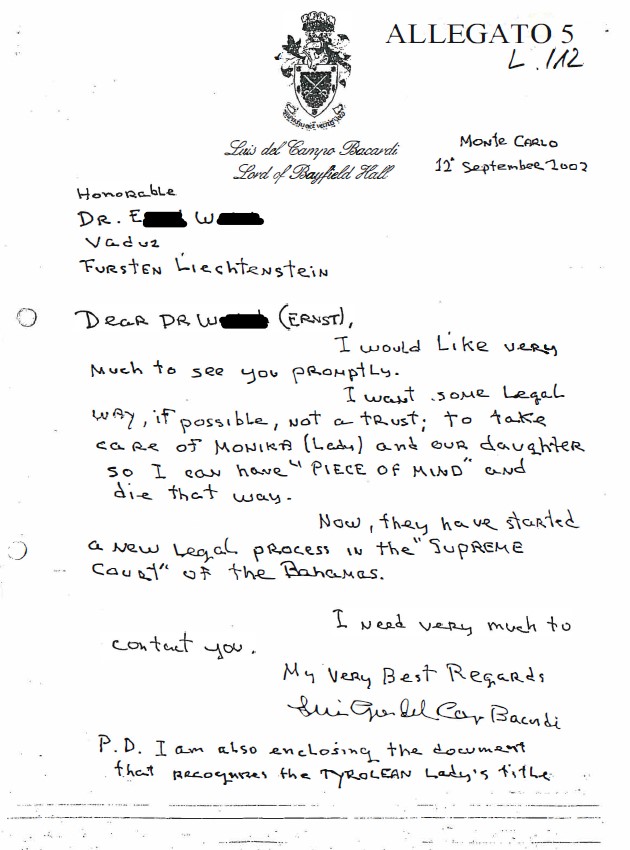 ALLEGATO 5
L. 1/12
Luis del Campo Bacardi
Lord of Bayfield Hall
Monte Carlo
12° September 2002
Honorable
DR. E W
Vaduz
FURSTEN Liechtenstein
Dear DR W (ERNST),
I would Like very
much to see you promptly.
I want some Legal
way, if possible, not a trust; to take
care of MONIKA (Lady) and our daughter
so I can have "PIECE OF MIND" and
die that way.
Now, they have started
a new legal process in the "SUPREME
COURT" of the Bahamas.
I need very much to
contact you.
My Very Best Regards
Bacardi
P.D. I am also enclosing the document
that recognizes the TYROLEAN Lady's tithe